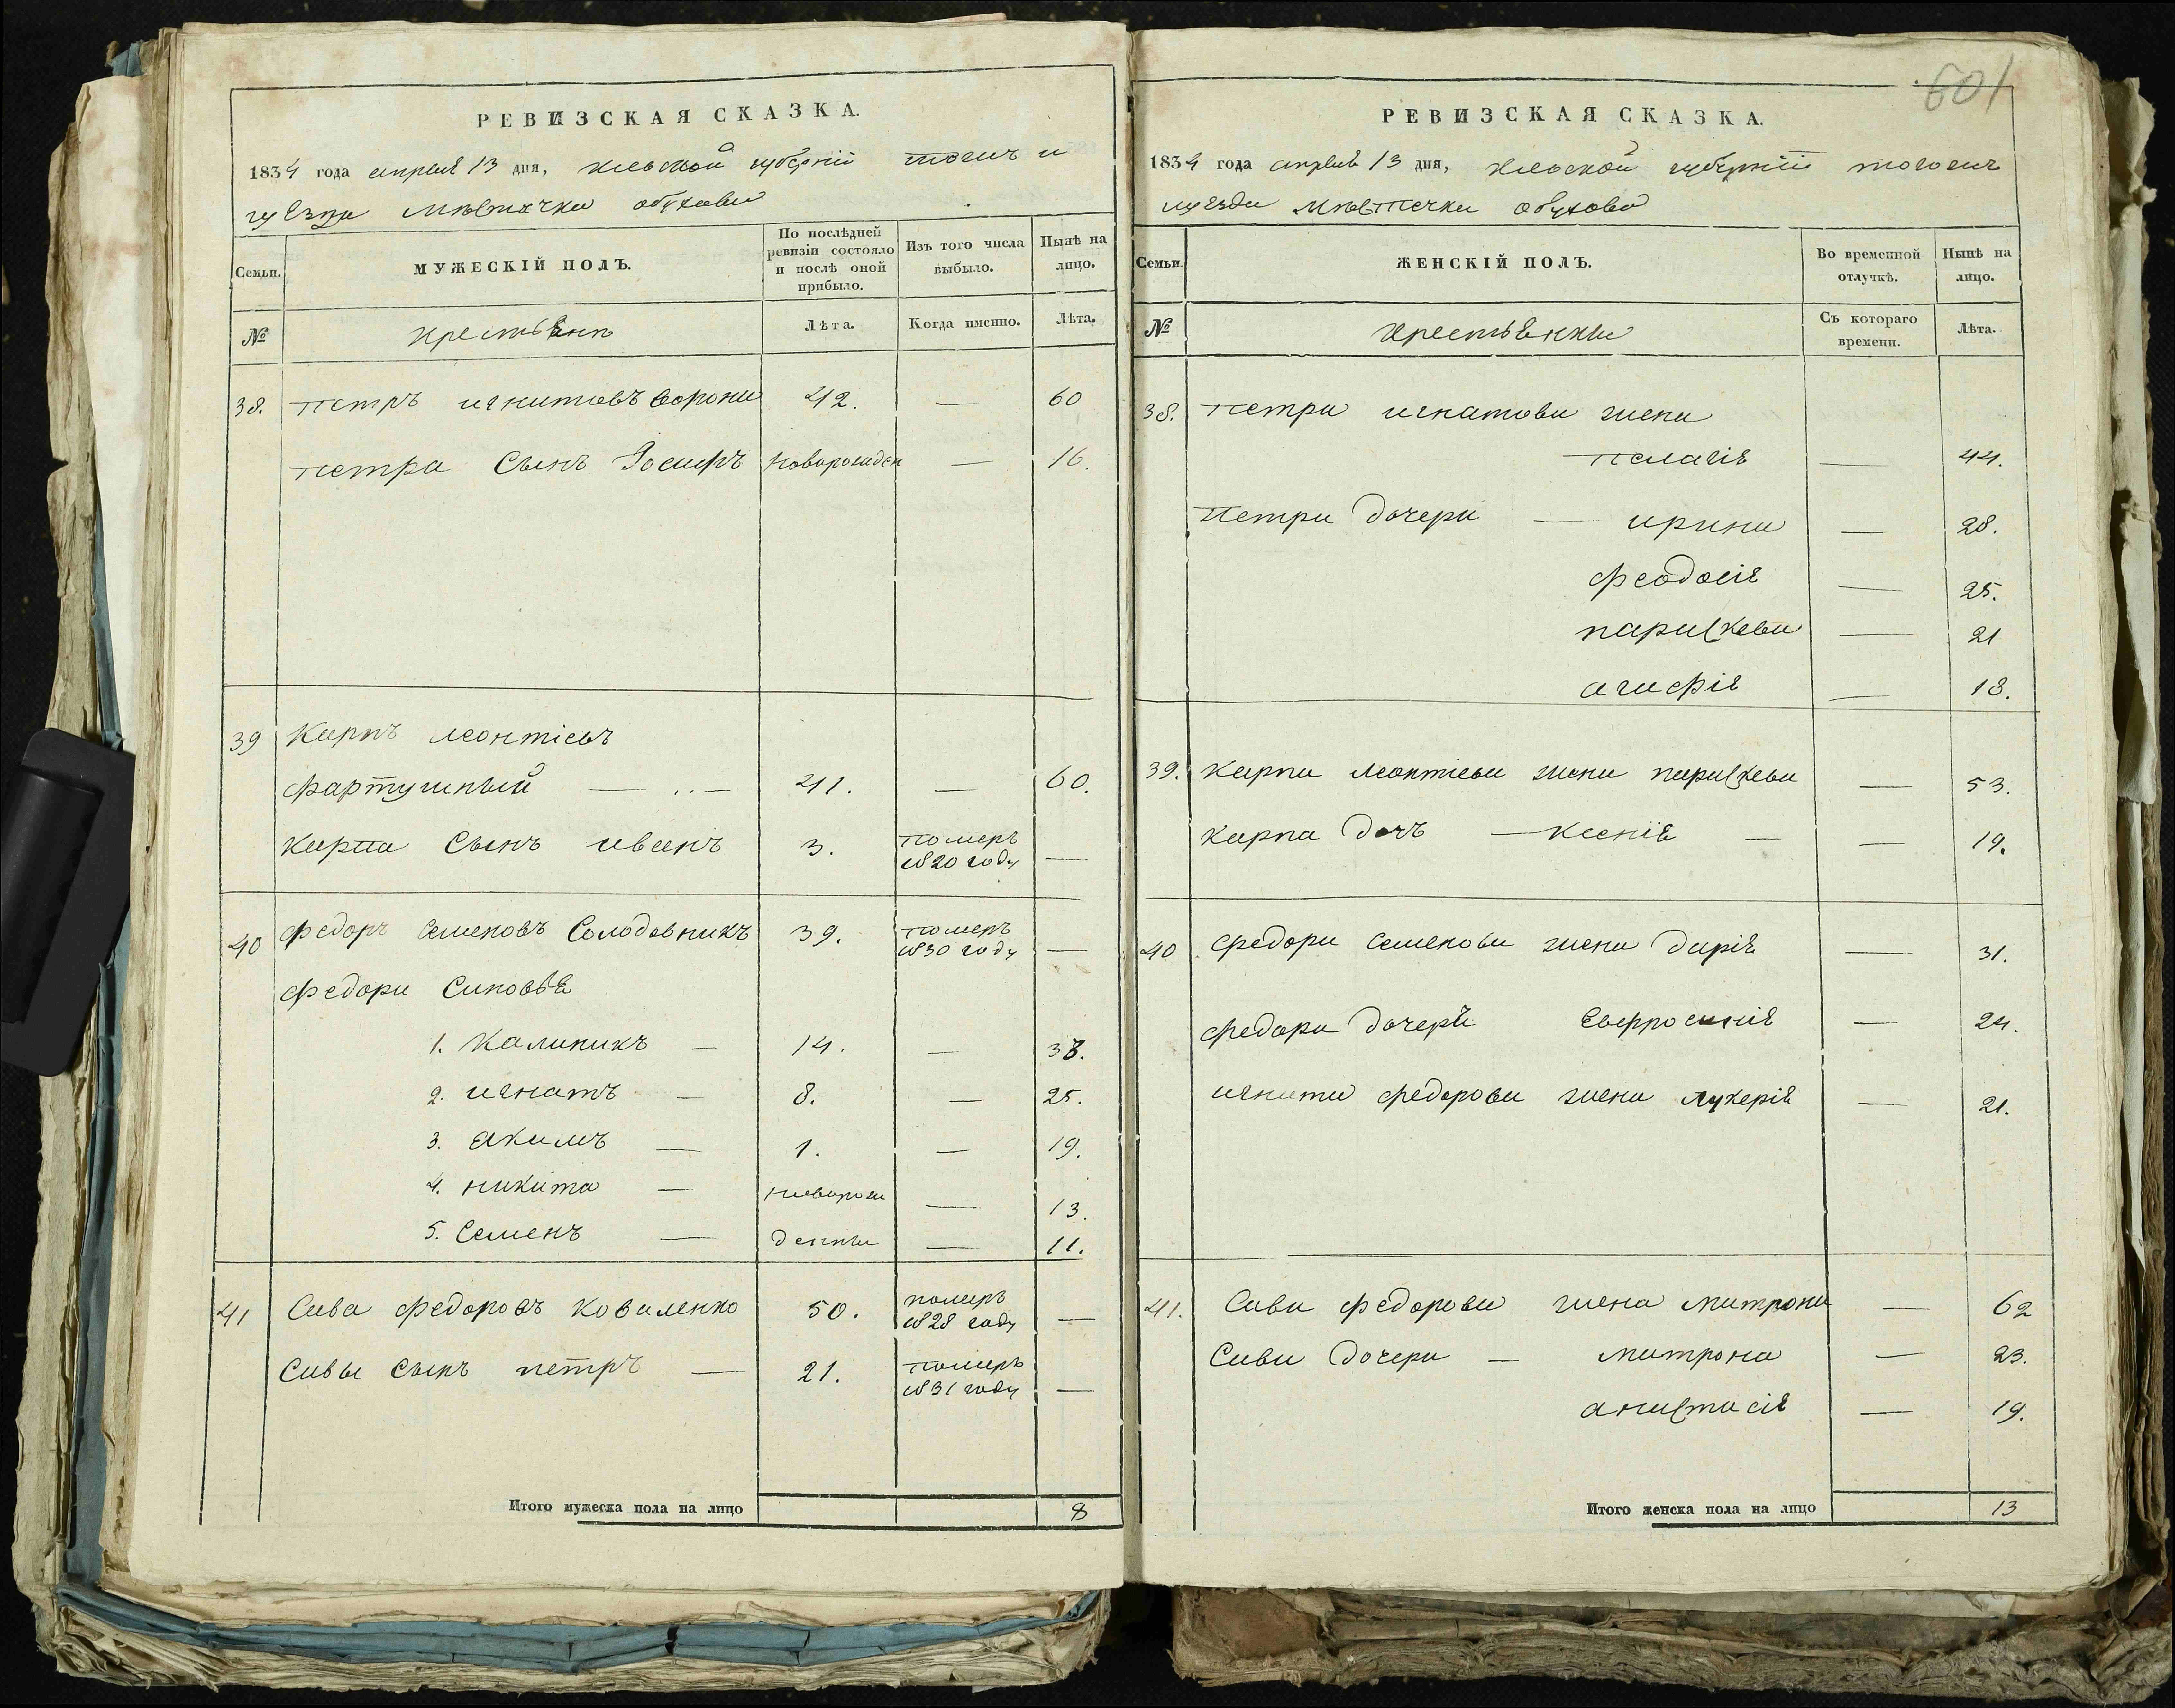 РЕВИЗСКАЯ СКАЗКА.
1834 года апреля 13 дня, Киевской губерніи тогожъ и
уезда местечка обухова
Семьи.
МУЖЕСКІЙ ПОЛЪ.
По послѣдней ревизіи состояло и послѣ оной прибыло.
Изъ того числа выбыло.
Нынѣ на лицо.
№
крестьяне
Лѣта.
Когда именно.
Лѣта.
38. петръ игнатовъ ворона 42. — 60
петра Сынъ Іосифъ новорожден — 16.
39 Карпъ леонтіевъ
фартушный — 41. — 60.
карпа Сынъ иванъ 3. померъ 1820 году —
40 федоръ Семеновъ Солодовникъ 39. померъ 1830 году —
федора Синовья
1. Калиникъ — 14. — 33.
2. игнатъ — 8. — 25.
3. якимъ — 1. — 19.
4. никита — новорож — 13.
5. Семенъ — денны — 11.
41 Сава федоровъ коваленко 50. померъ 1828 году —
Савы Сынъ петръ — 21. померъ 1831 году —
Итого мужеска пола на лицо 8
601
РЕВИЗСКАЯ СКАЗКА.
1834 года апреля 13 дня, Киевской губерніи тогожъ
уезда местечка обухова
Семьи.
ЖЕНСКІЙ ПОЛЪ.
Во временной отлучкѣ.
Нынѣ на лицо.
№
крестьянки
Съ котораго времени.
Лѣта.
38. петра игнатова жена
пелагія — 44.
петра дочери — ирина — 28.
феодосія — 25.
параскева — 21
агафія — 18.
39. карпа леонтіева жена параскева — 53.
карпа дочъ — ксенія — — 19.
40 федора семенова жена дарія — 31.
федора дочерй Евфросинія — 24.
игната федорова жена лукерія — 21.
41. Сави федорова жена митрона — 62
Сави дочери — митрона — 23.
анастасія — 19.
Итого женска пола на лицо 13